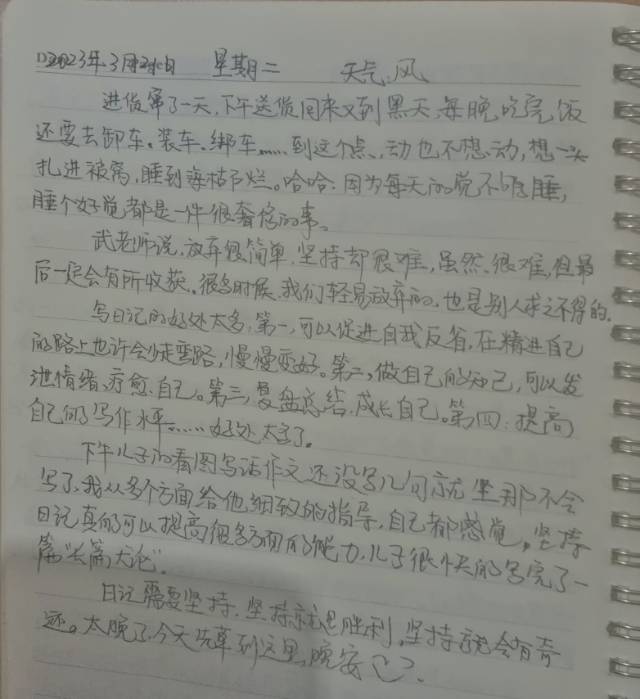 2023年.3月21日 星期二 天气 风
进货第了一天,下午送货回来又到黑天,每晚吃完饭
还要去卸车.装车.绑车……到这个点,动也不想动,想一头
扎进被窝,睡到海枯石烂。哈哈,因为每天的觉不够睡,
睡个好觉都是一件很奢侈的事。
武老师说,放弃很简单,坚持却很难,虽然很难,但最
后一定会有所收获。很多时候,我们轻易放弃的,也是别人求之不得的.
写日记的好处太多,第一,可以促进自我反省,在精进自己
的路上也许会少走弯路,慢慢变好。第二,做自己的知己,可以发
泄情绪,疗愈自己。第三,复盘总结,成长自己。第四:提高
自己的写作水平……好处太多了。
下午儿子的看图写话作文还没写几句就坐那不会
写了,我从多个方面给他细致的指导,自己都感觉,坚持
日记真的可以提高很多方面的能力,儿子很快的写完了一
篇"长篇大论".
日记需要坚持.坚持就是胜利,坚持就会有奇
迹。太晚了,今天先草到这里,晚安